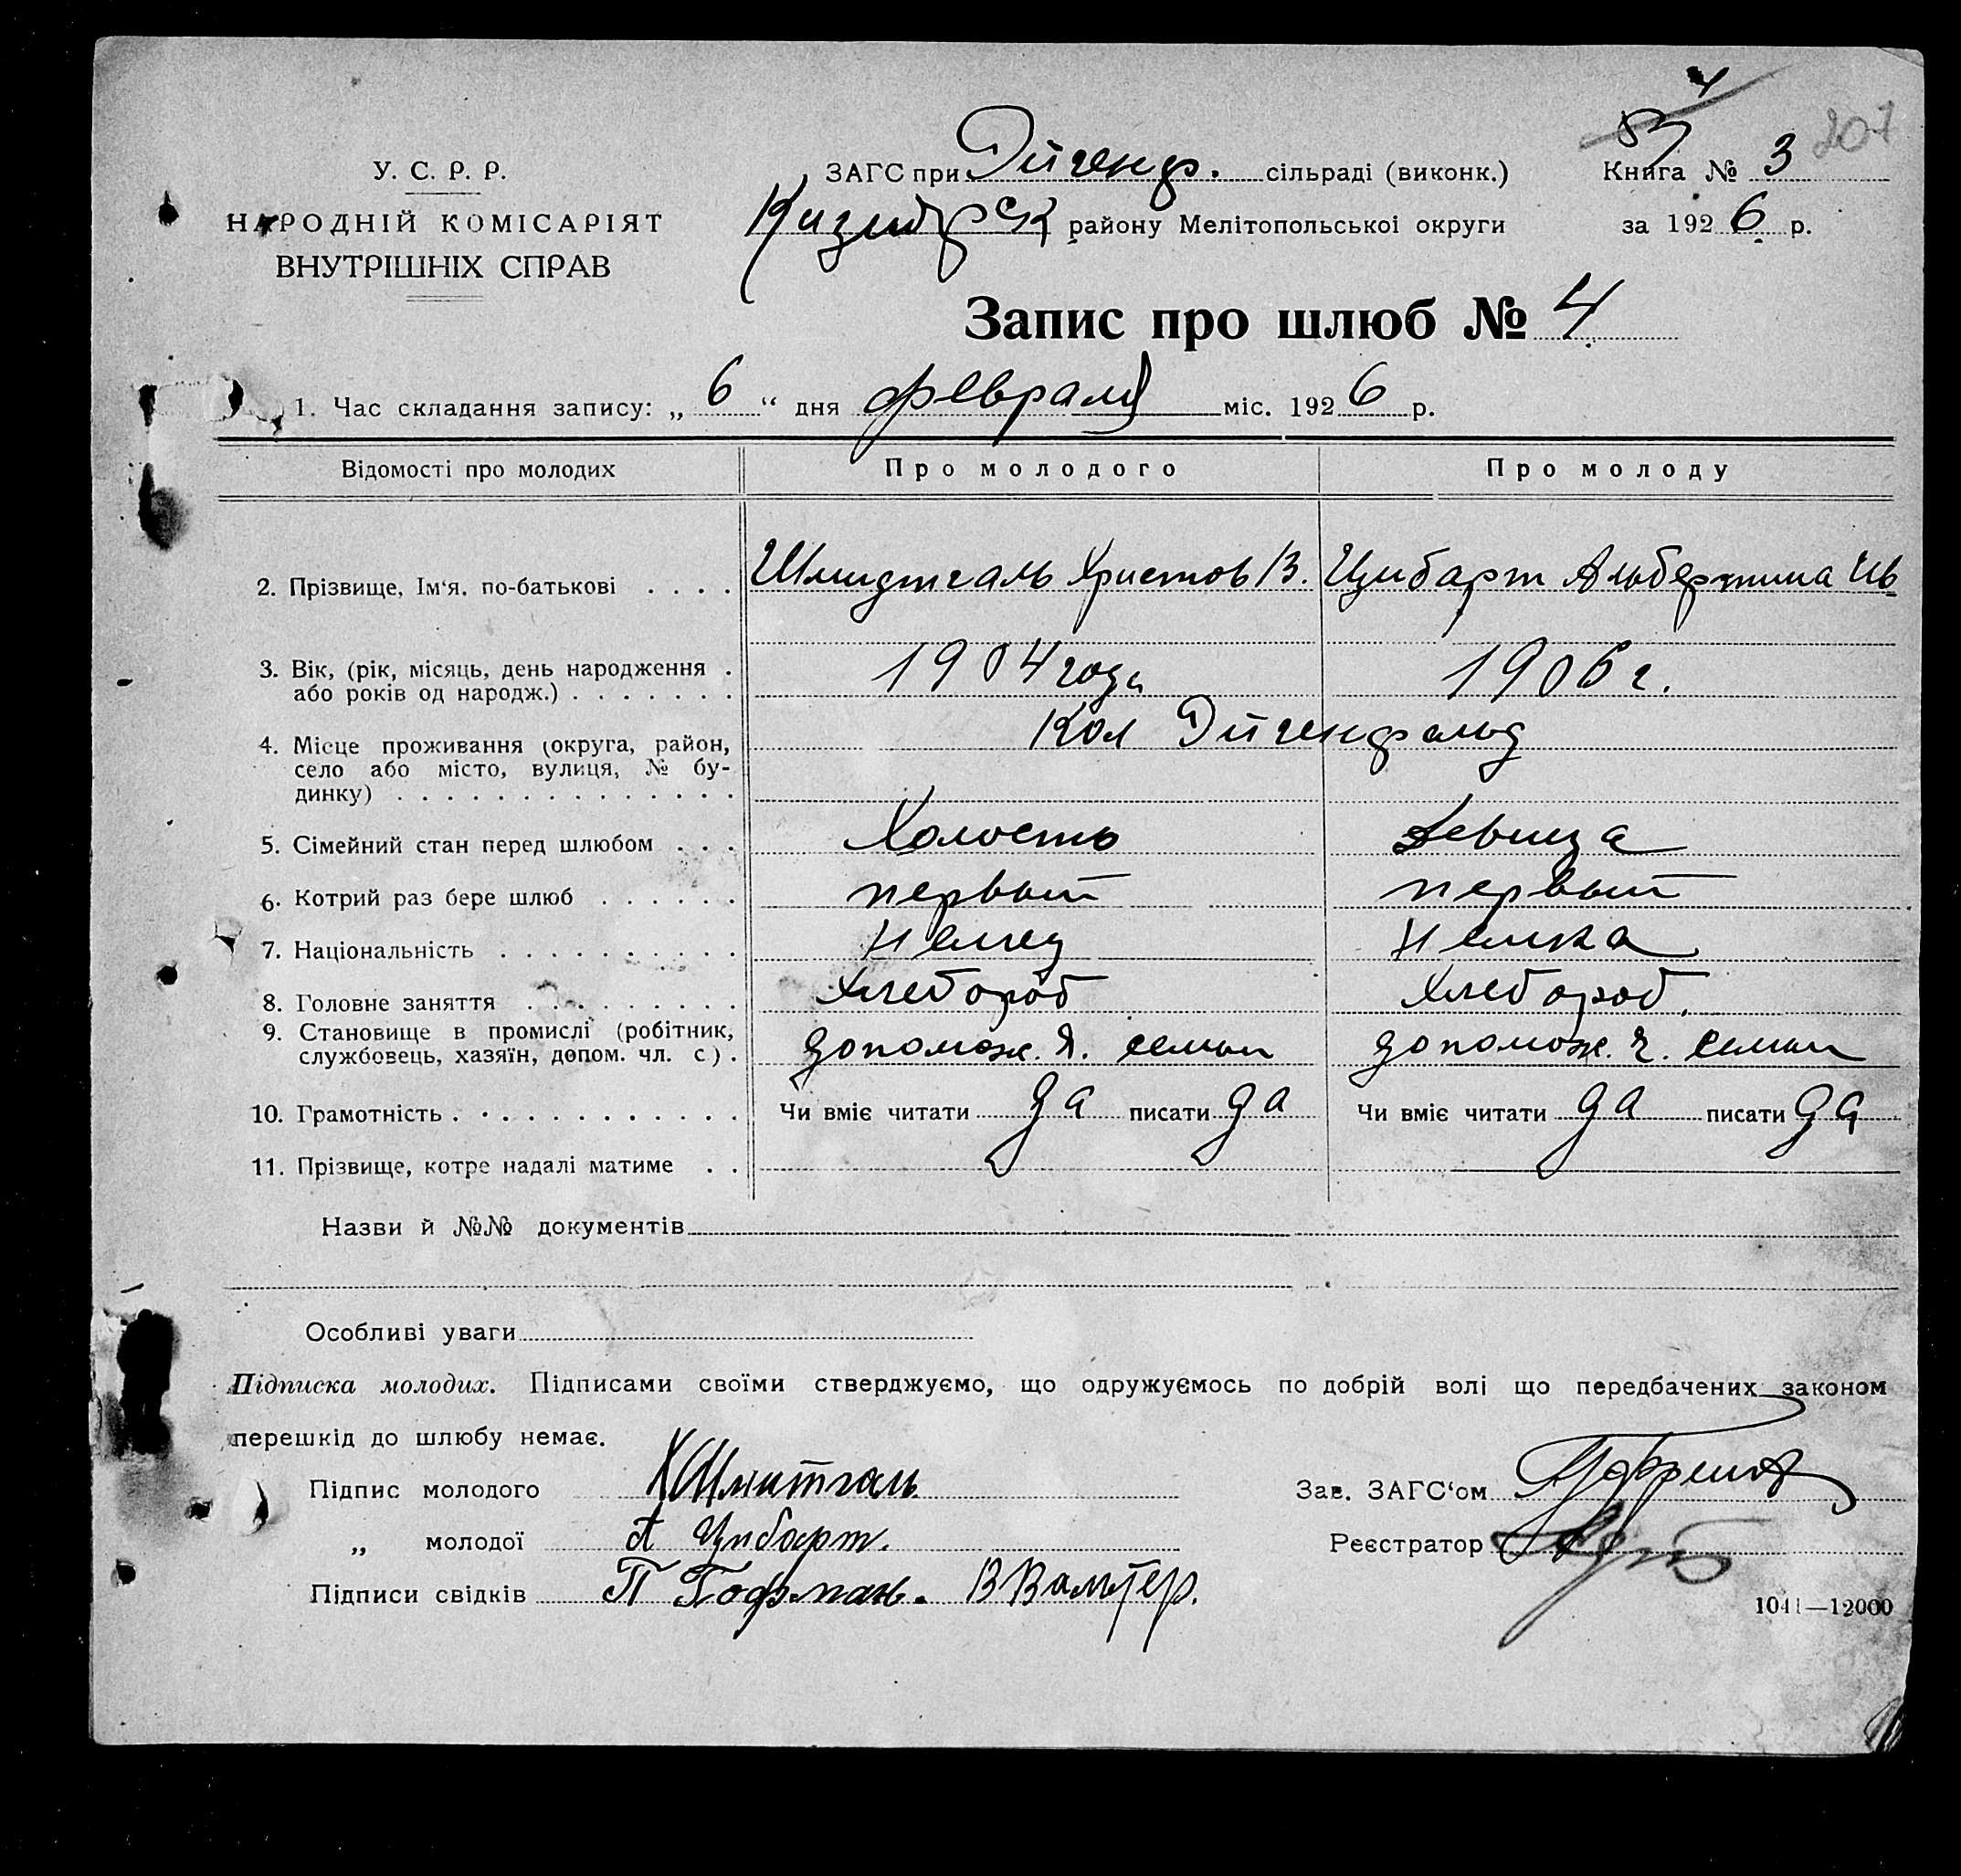 4
57
207
У. С. Р. Р.
НАРОДНІЙ КОМІСАРІЯТ
ВНУТРІШНІХ СПРАВ
ЗАГС при Эйгенф. сільраді (виконк.)
району Мелітопольської округи
Книга № 3
за 1926 р.
Запис про шлюб № 4
1. Час складання запису: „ 6 “ дня февраля міс. 1926 р.
Відомості про молодих Про молодого Про молоду
2. Прізвище, Ім‘я, по-батькові . . . . Шмидтгаль Христов В. Цибарт Альбертина Ив
3. Вік, (рік, місяць, день народження . 1904 года 1906 г.
або років од народж.) . . . . . . .
4. Місце проживання (округа, район, Кол Эйгенфельд
село або місто, вулиця, № бу-
динку) . . . . . . . . . . . . . .
5. Сімейний стан перед шлюбом . . . Холость Девица
6. Котрий раз бере шлюб . . . . . . первый первый
7. Національність . . . . . . . . . . Немец Немка
8. Головне заняття . . . . . . . . . Хлебороб Хлебороб.
9. Становище в промислі (робітник,
службовець, хазяїн, допом. чл. с.) . допомож. Ч. семьи допомож. Ч. семьи
10. Грамотність . . . . . . . . . . . . Чи вміє читати да писати да Чи вміє читати да писати да
11. Прізвище, котре надалі матиме . .
Назви й №№ документів
Особливі уваги
Підписка молодих. Підписами своїми стверджуємо, що одружуємось по добрій волі що передбачених законом
перешкід до шлюбу немає.
Підпис молодого ХШмитгаль
„ молодої А Цибарт.
Підписи свідків П Гофман. В Валтер.
Зав. ЗАГС‘ом
Реєстратор
1041—12000